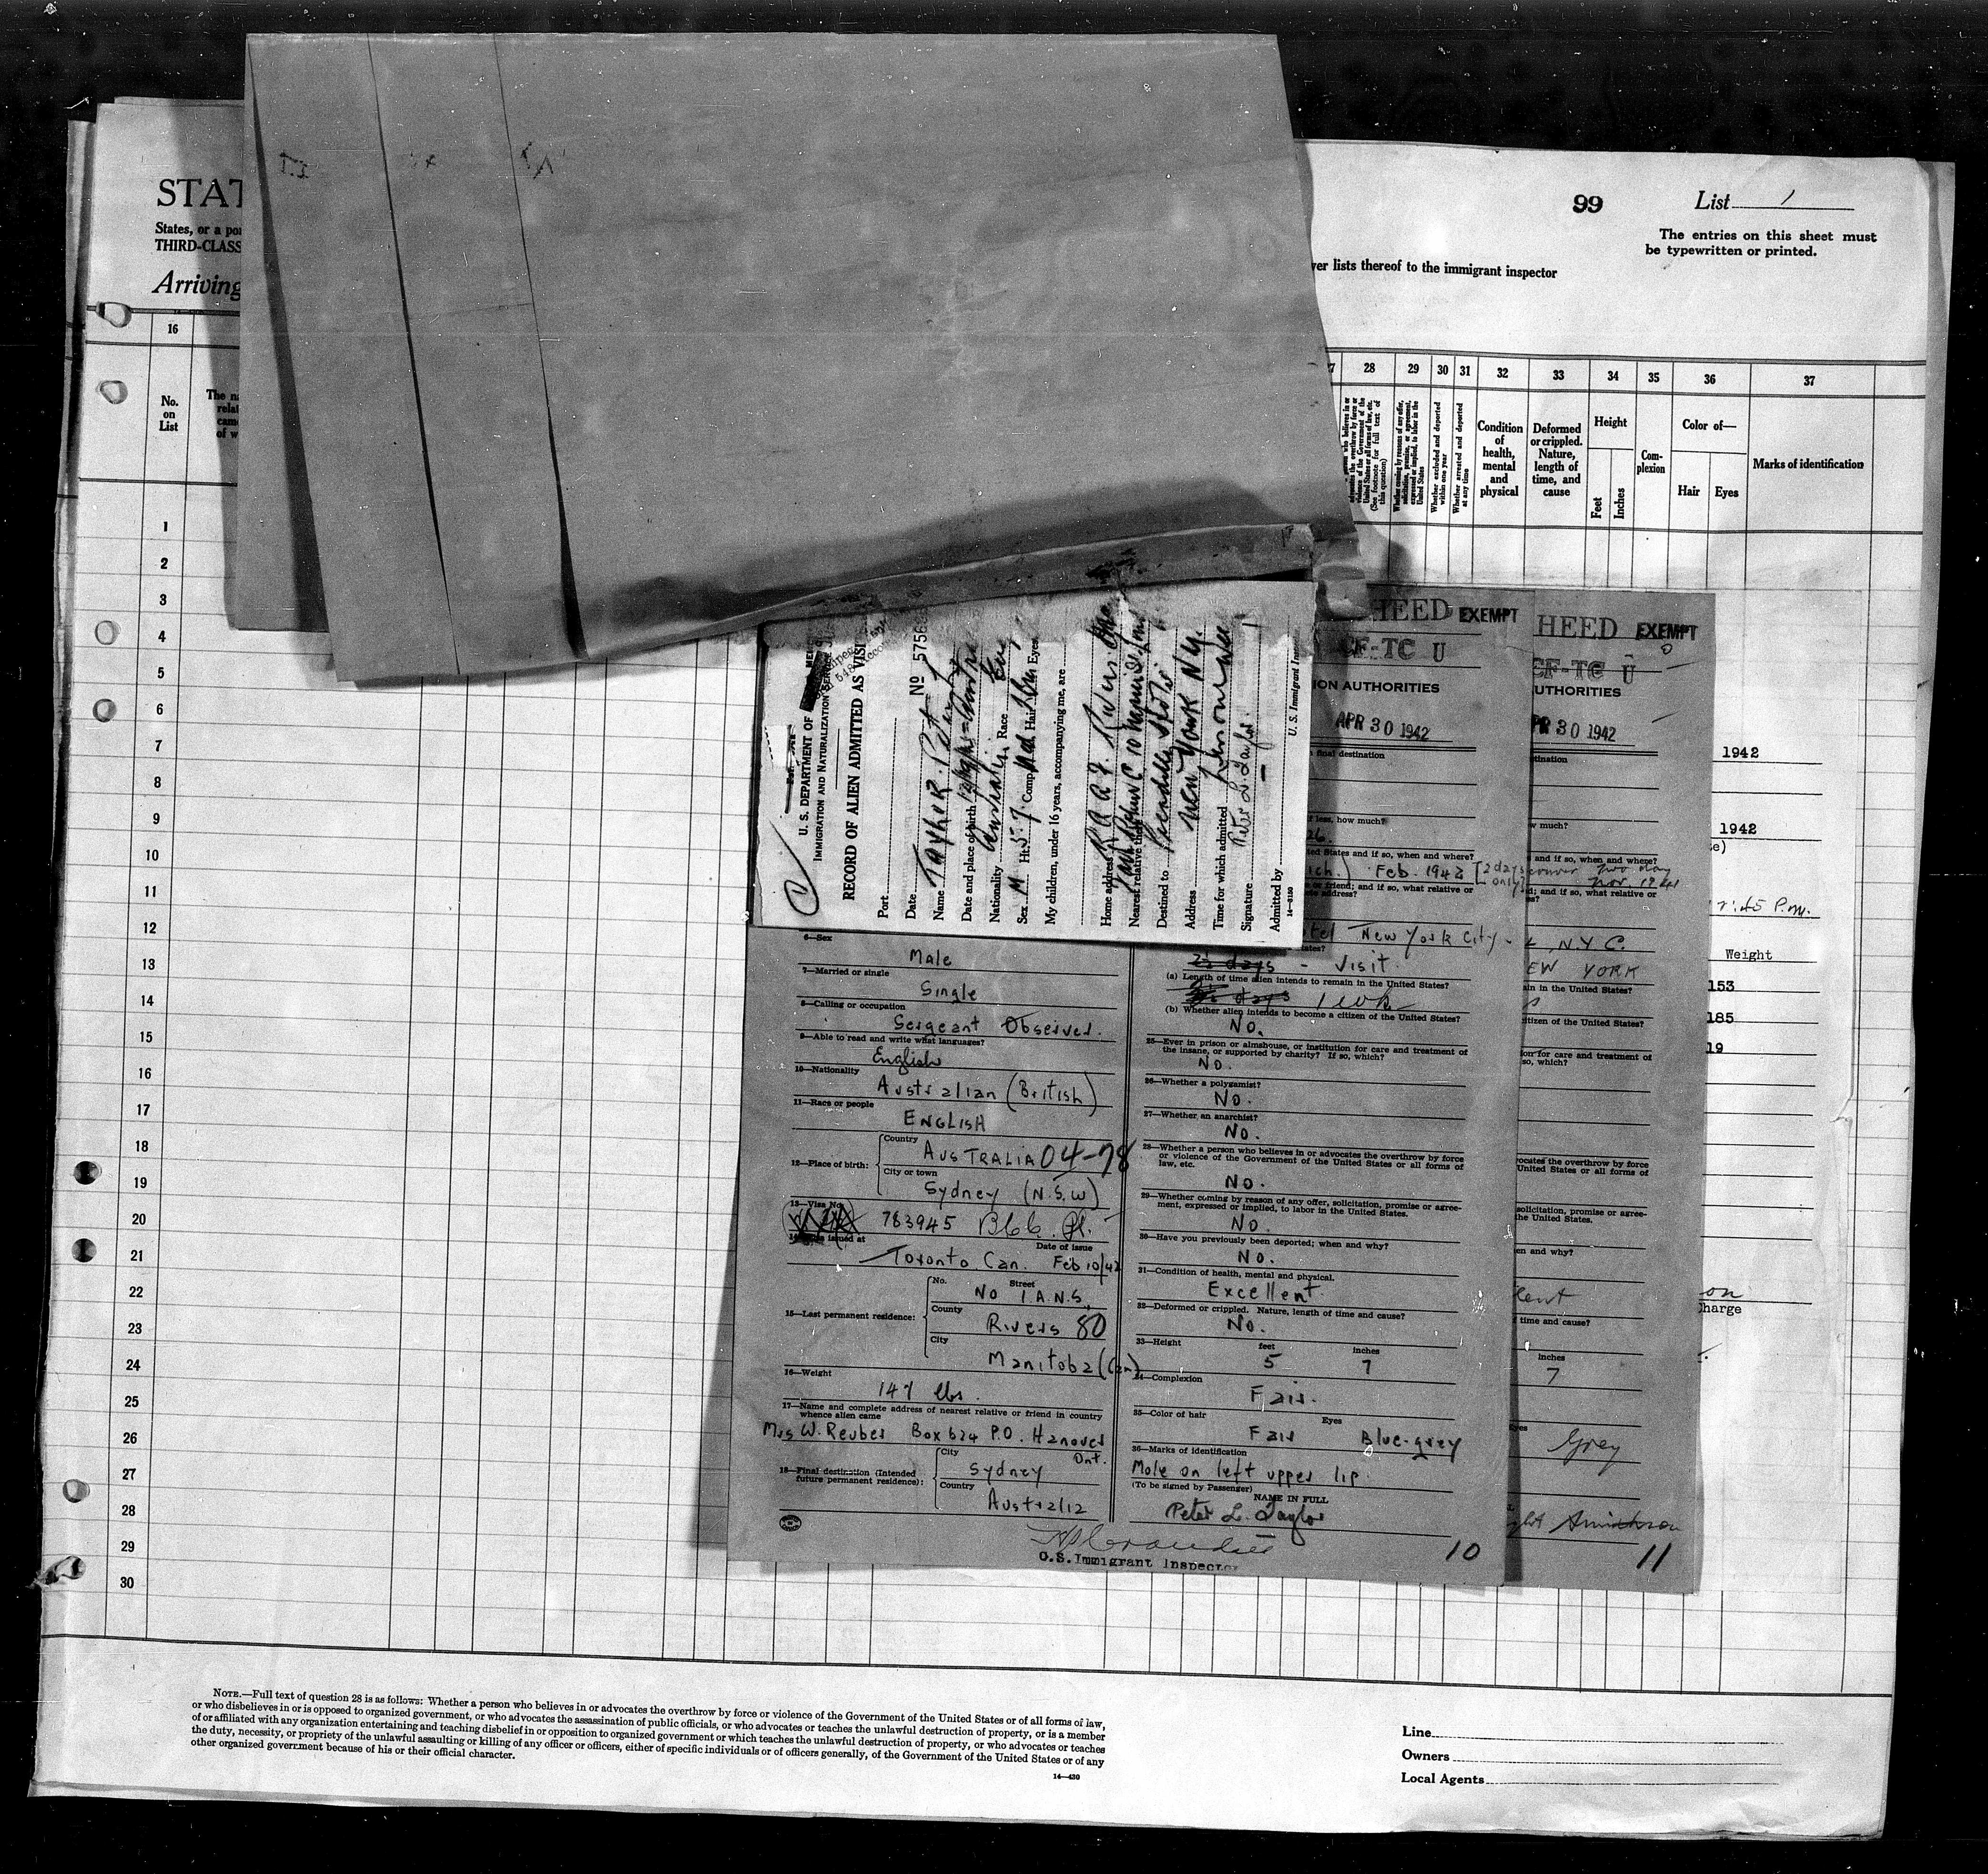 STAT
States, or a por
THIRD-CLASS
Arriving
99
List 1
The entries on this sheet must
be typewritten or printed.
ver lists thereof to the immigrant inspector
16
No.
on
List
28
29
30
31
32
33
34
35
36
37
Whether excluded and deported within one year
Whether arrested and deported at any time
Condition
of
health,
mental
and
physical
Deformed
or crippled.
Nature,
length of
time, and
cause
Height
Feet
Inches
Com-
plexion
Color of—
Hair
Eyes
Marks of identification
1
2
3
4
5
6
7
8
9
10
11
12
13
14
15
16
17
18
19
20
21
22
23
24
25
26
27
28
29
30
U. S. DEPARTMENT OF
IMMIGRATION AND NATURALIZATION SERVICE
RECORD OF ALIEN ADMITTED AS VISI
Port
Date
No 5756
Name TAYLOR. Peter
Date and place of birth
Nationality Australia Race Eng
Sex M Ht. 5-7 Comp. Hair Eyes
My children, under 16 years, accompanying me, are
Home address
Nearest relative
Destined to Piccadilly Hotel
Address New York N.Y.
Time for which admitted
Signature Peter L. Taylor
Admitted by
U. S. Immigrant
HEED EXEMPT
CF-TC U
ION AUTHORITIES
APR 30 1942
final destination
less, how much?
ted States and if so, when and where?
Feb. 1942 [2 days only]
or friend; and if so, what relative or
address?
New York City.
6—Sex
Male
7—Married or single
Single
8—Calling or occupation
Sergeant Observer.
9—Able to read and write what languages?
English
10—Nationality
Australian (British)
11—Race or people
ENGLISH
12—Place of birth:
Country
AUSTRALIA 04-78
City or town
Sydney (N.S.W)
13—Visa No.
783945
Date of issue
Toronto Can. Feb 10/42
15—Last permanent residence:
No. Street
No 1 A.N.S.
County
Rivers 80
City
Manitoba (Can)
16—Weight
147 lbs.
17—Name and complete address of nearest relative or friend in country
whence alien came
Mrs W. Reuber Box 624 P.O. Hanover
Ont.
18—Final destination (Intended
future permanent residence):
City
Sydney
Country
Australia
visit
(a) Length of time alien intends to remain in the United States?
1 wk
(b) Whether alien intends to become a citizen of the United States?
No.
25—Ever in prison or almshouse, or institution for care and treatment of
the insane, or supported by charity? If so, which?
No.
26—Whether a polygamist?
No.
27—Whether an anarchist?
No.
28—Whether a person who believes in or advocates the overthrow by force
or violence of the Government of the United States or all forms of
law, etc.
No.
29—Whether coming by reason of any offer, solicitation, promise or agree-
ment, expressed or implied, to labor in the United States.
No.
30—Have you previously been deported; when and why?
No.
31—Condition of health, mental and physical.
Excellent
32—Deformed or crippled. Nature, length of time and cause?
No.
33—Height
feet inches
5 7
34—Complexion
Fair.
35—Color of hair Eyes
Fair Blue-grey
36—Marks of identification
Mole on left upper lip.
(To be signed by Passenger)
NAME IN FULL
Peter L. Taylor
U.S. Immigrant Inspector
10
HEED EXEMPT
CF-TC U
UTHORITIES
PR 30 1942
tination
w much?
and if so, when and where?
Nov. 1941
d; and if so, what relative or
N.Y C.
EW YORK
ain in the United States?
itizen of the United States?
ion for care and treatment of
so, which?
vocates the overthrow by force
United States or all forms of
solicitation, promise or agree-
the United States.
en and why?
lent
time and cause?
inches
7
Eyes
Grey
11
1942
1942
P.m.
Weight
153
185
19
on
Charge
NOTE.—Full text of question 28 is as follows: Whether a person who believes in or advocates the overthrow by force or violence of the Government of the United States or of all forms of law,
or who disbelieves in or is opposed to organized government, or who advocates the assassination of public officials, or who advocates or teaches the unlawful destruction of property, or is a member
of or affiliated with any organization entertaining and teaching disbelief in or opposition to organized government or which teaches the unlawful destruction of property, or who advocates or teaches
the duty, necessity, or propriety of the unlawful assaulting or killing of any officer or officers, either of specific individuals or of officers generally, of the Government of the United States or of any
other organized government because of his or their official character.
14—430
Line
Owners
Local Agents